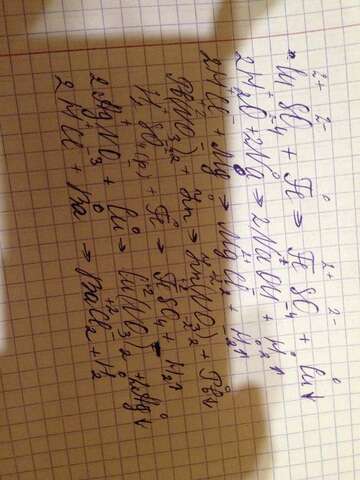 2+ 2- 0 2+ 2- 0
CuSO₄ + Fe ⇒ FeSO₄ + Cu↓
2H₂O + 2Na ⇒ 2NaOH + H₂↑
2HCl + Mg ⇒ MgCl₂ + H₂↑
Pb(NO₃)₂ + Zn ⇒ Zn(NO₃)₂ + Pb↓
H₂SO₄(р) + Fe ⇒ FeSO₄ + H₂↑
2AgNO₃ + Cu ⇒ Cu(NO₃)₂ + 2Ag↓
2HCl + Ba ⇒ BaCl₂ + H₂